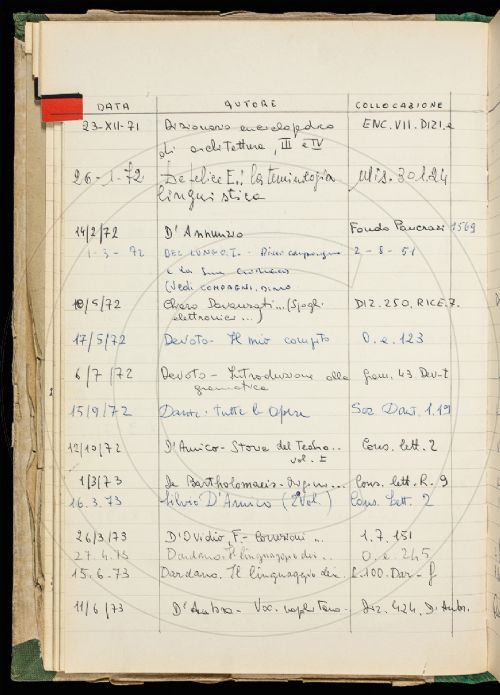 DATA AUTORE COLLOCAZIONE
23-XII-71 Dizionario enciclopedico ENC. VII. DIZI.2
di architettura, III e IV
26-1-72 De Felice E.: la terminologia Mis. 30.1.24
linguistica
14/2/72 D'Annunzio Fondo Pancrazi 1569
1-3-72 DEL LUNGO I. - Dino Compagni 2-8-51
e la sua cronaca
(Vedi COMPAGNI, DINO
10/5/72 Chiaro Davanzati...(Spogli DIZ. 250. RICE.7.
elettronici ...)
17/5/72 Devoto - Il mio compito O.e.123
6/7/72 Devoto - Introduzione alla Gram. 43 Dev-I
grammatica
15/9/72 Dante. tutte le Opere Soc Dant. 1.19
12/10/72 D'Amico - Storia del Teatro.. Cons. lett. 2
vol. I
1/3/73 De Bartholomaeis - Cons. lett. R. 9
16.3.73 Silvio D'Amico (2° Vol.) Cons. Lett. 2
26/3/73 D'Ovidio, F. - Correzioni .. 1.7.151
27.4.73 Dardano. Il linguaggio dei .. O.e.245
15.6.73 Dardano. Il linguaggio dei. L.100.Dar-
11/6/73 D'Ambra - Voc. napletano. Diz. 424. D'Ambr.